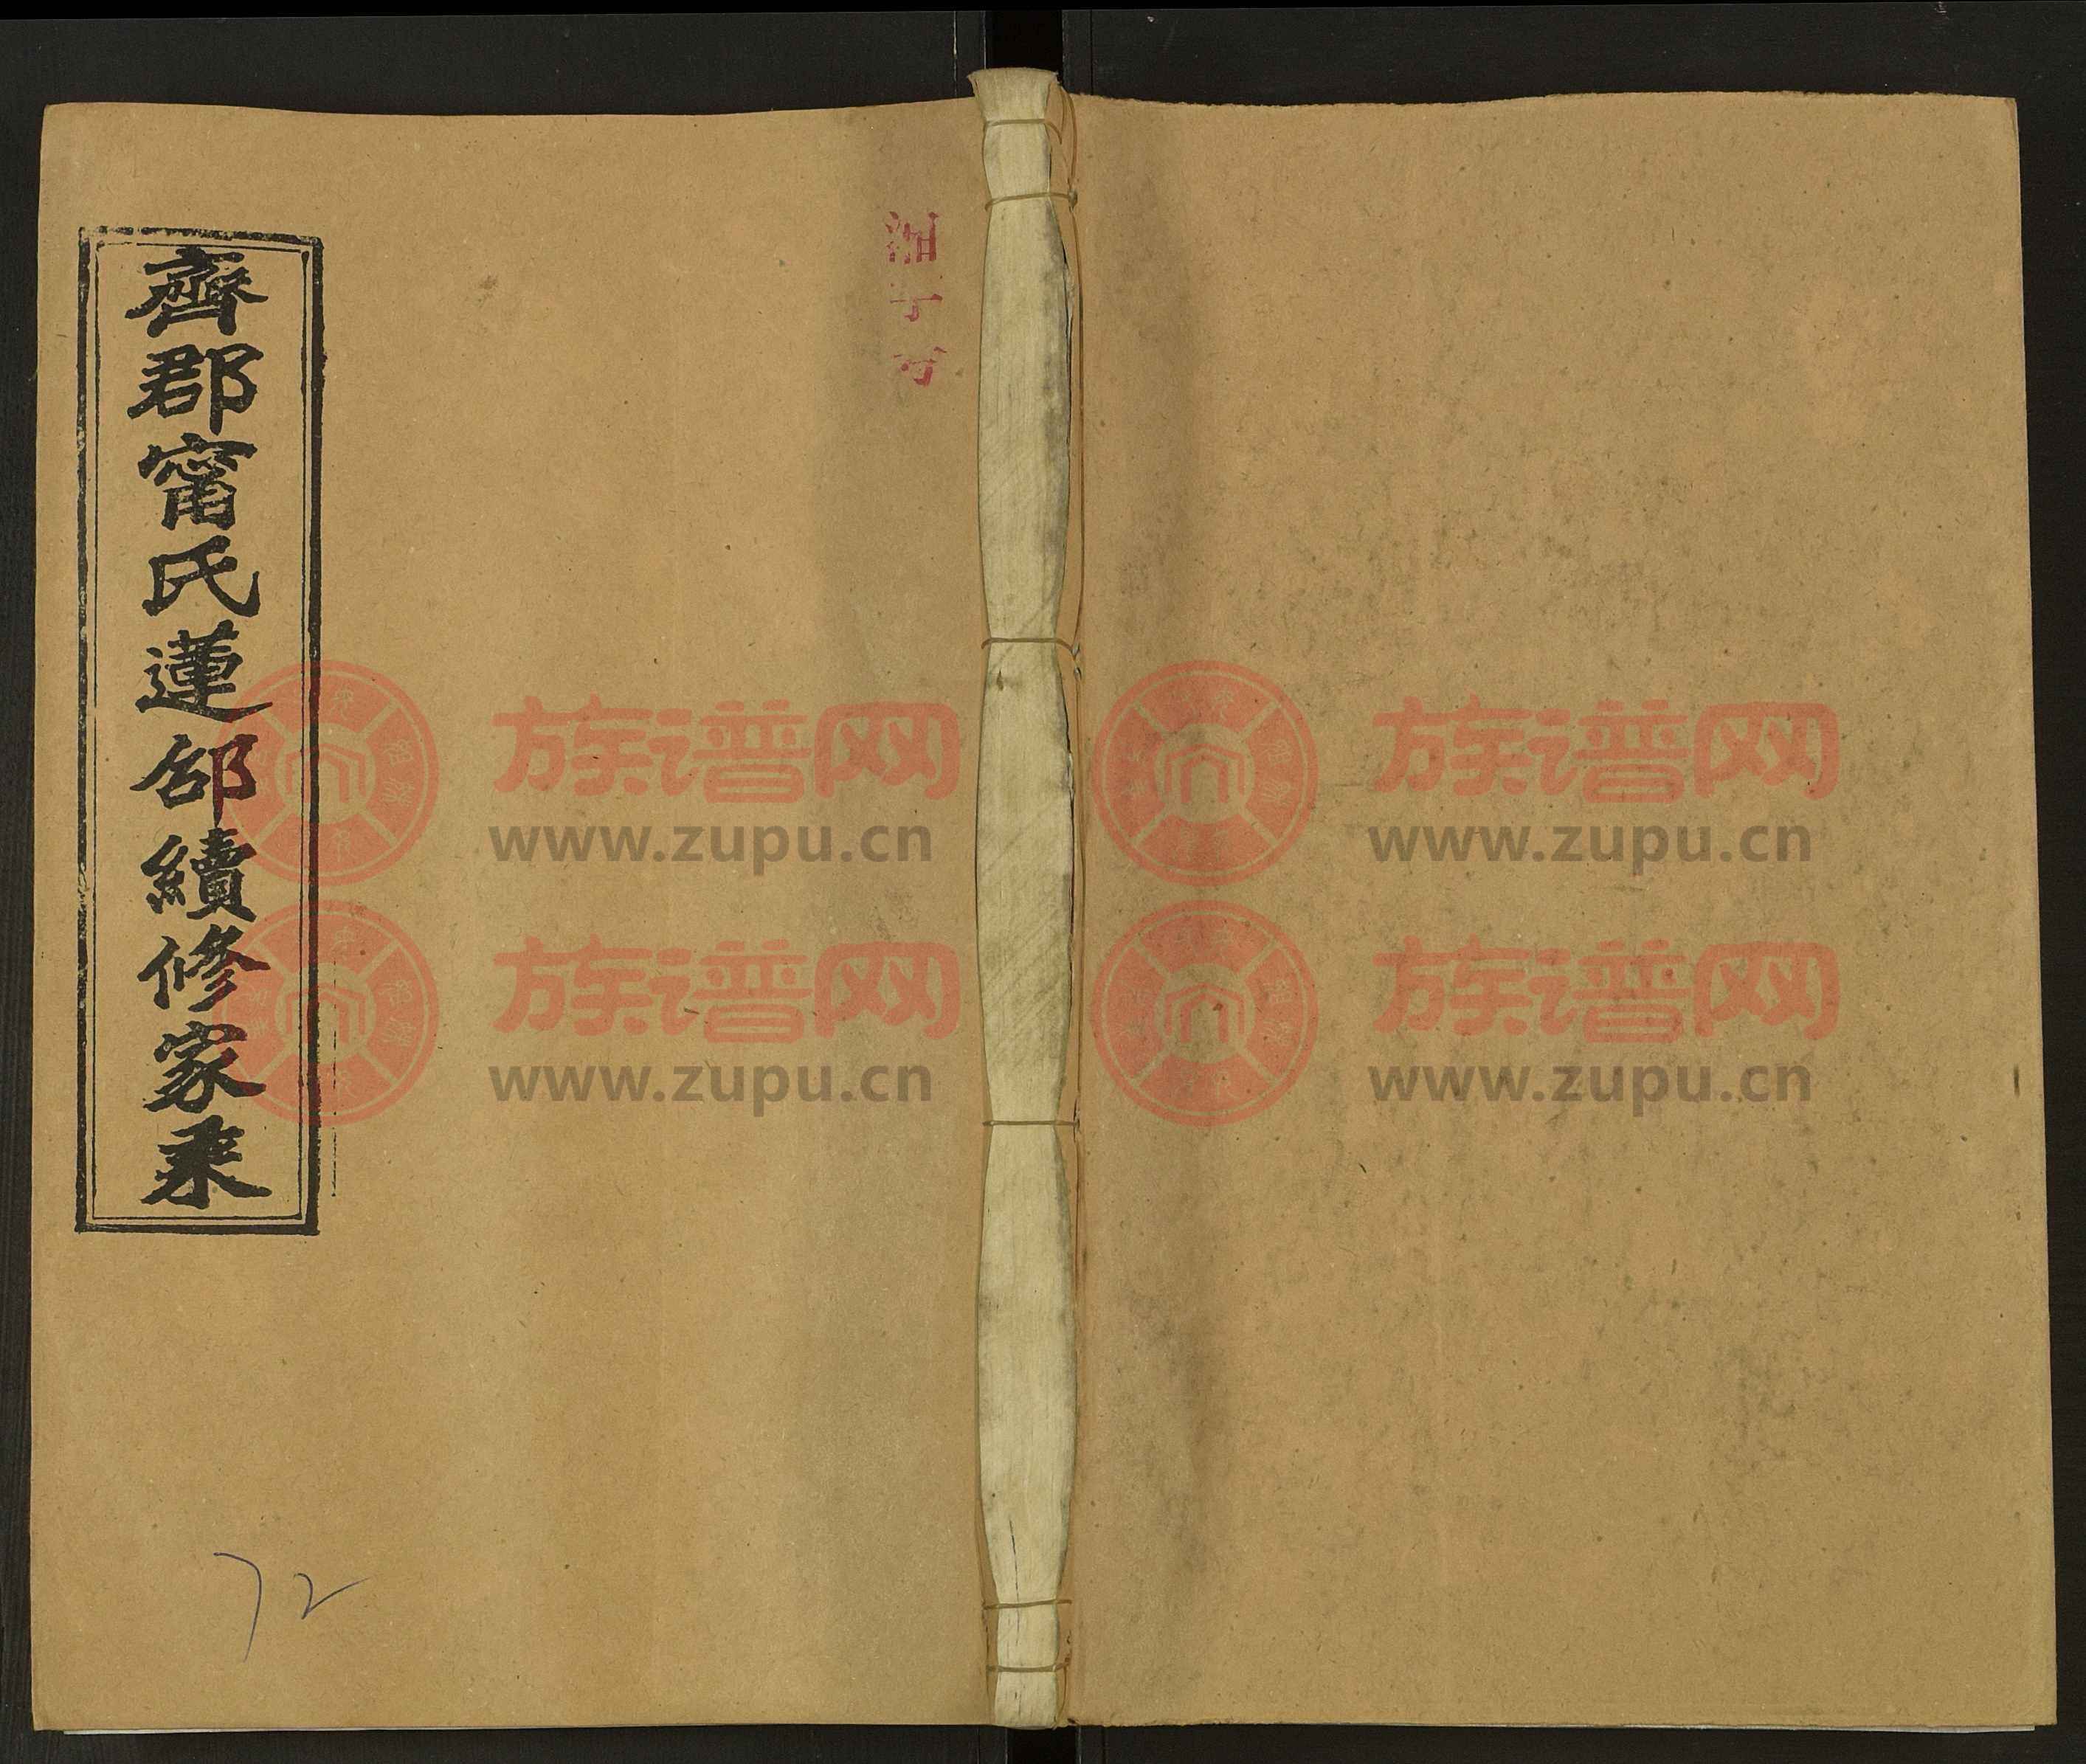 齊郡甯氏蓮邵續修家乘
72
族谱网
www.zupu.cn
族谱网
www.zupu.cn
族谱网
www.zupu.cn
族谱网
www.zupu.cn